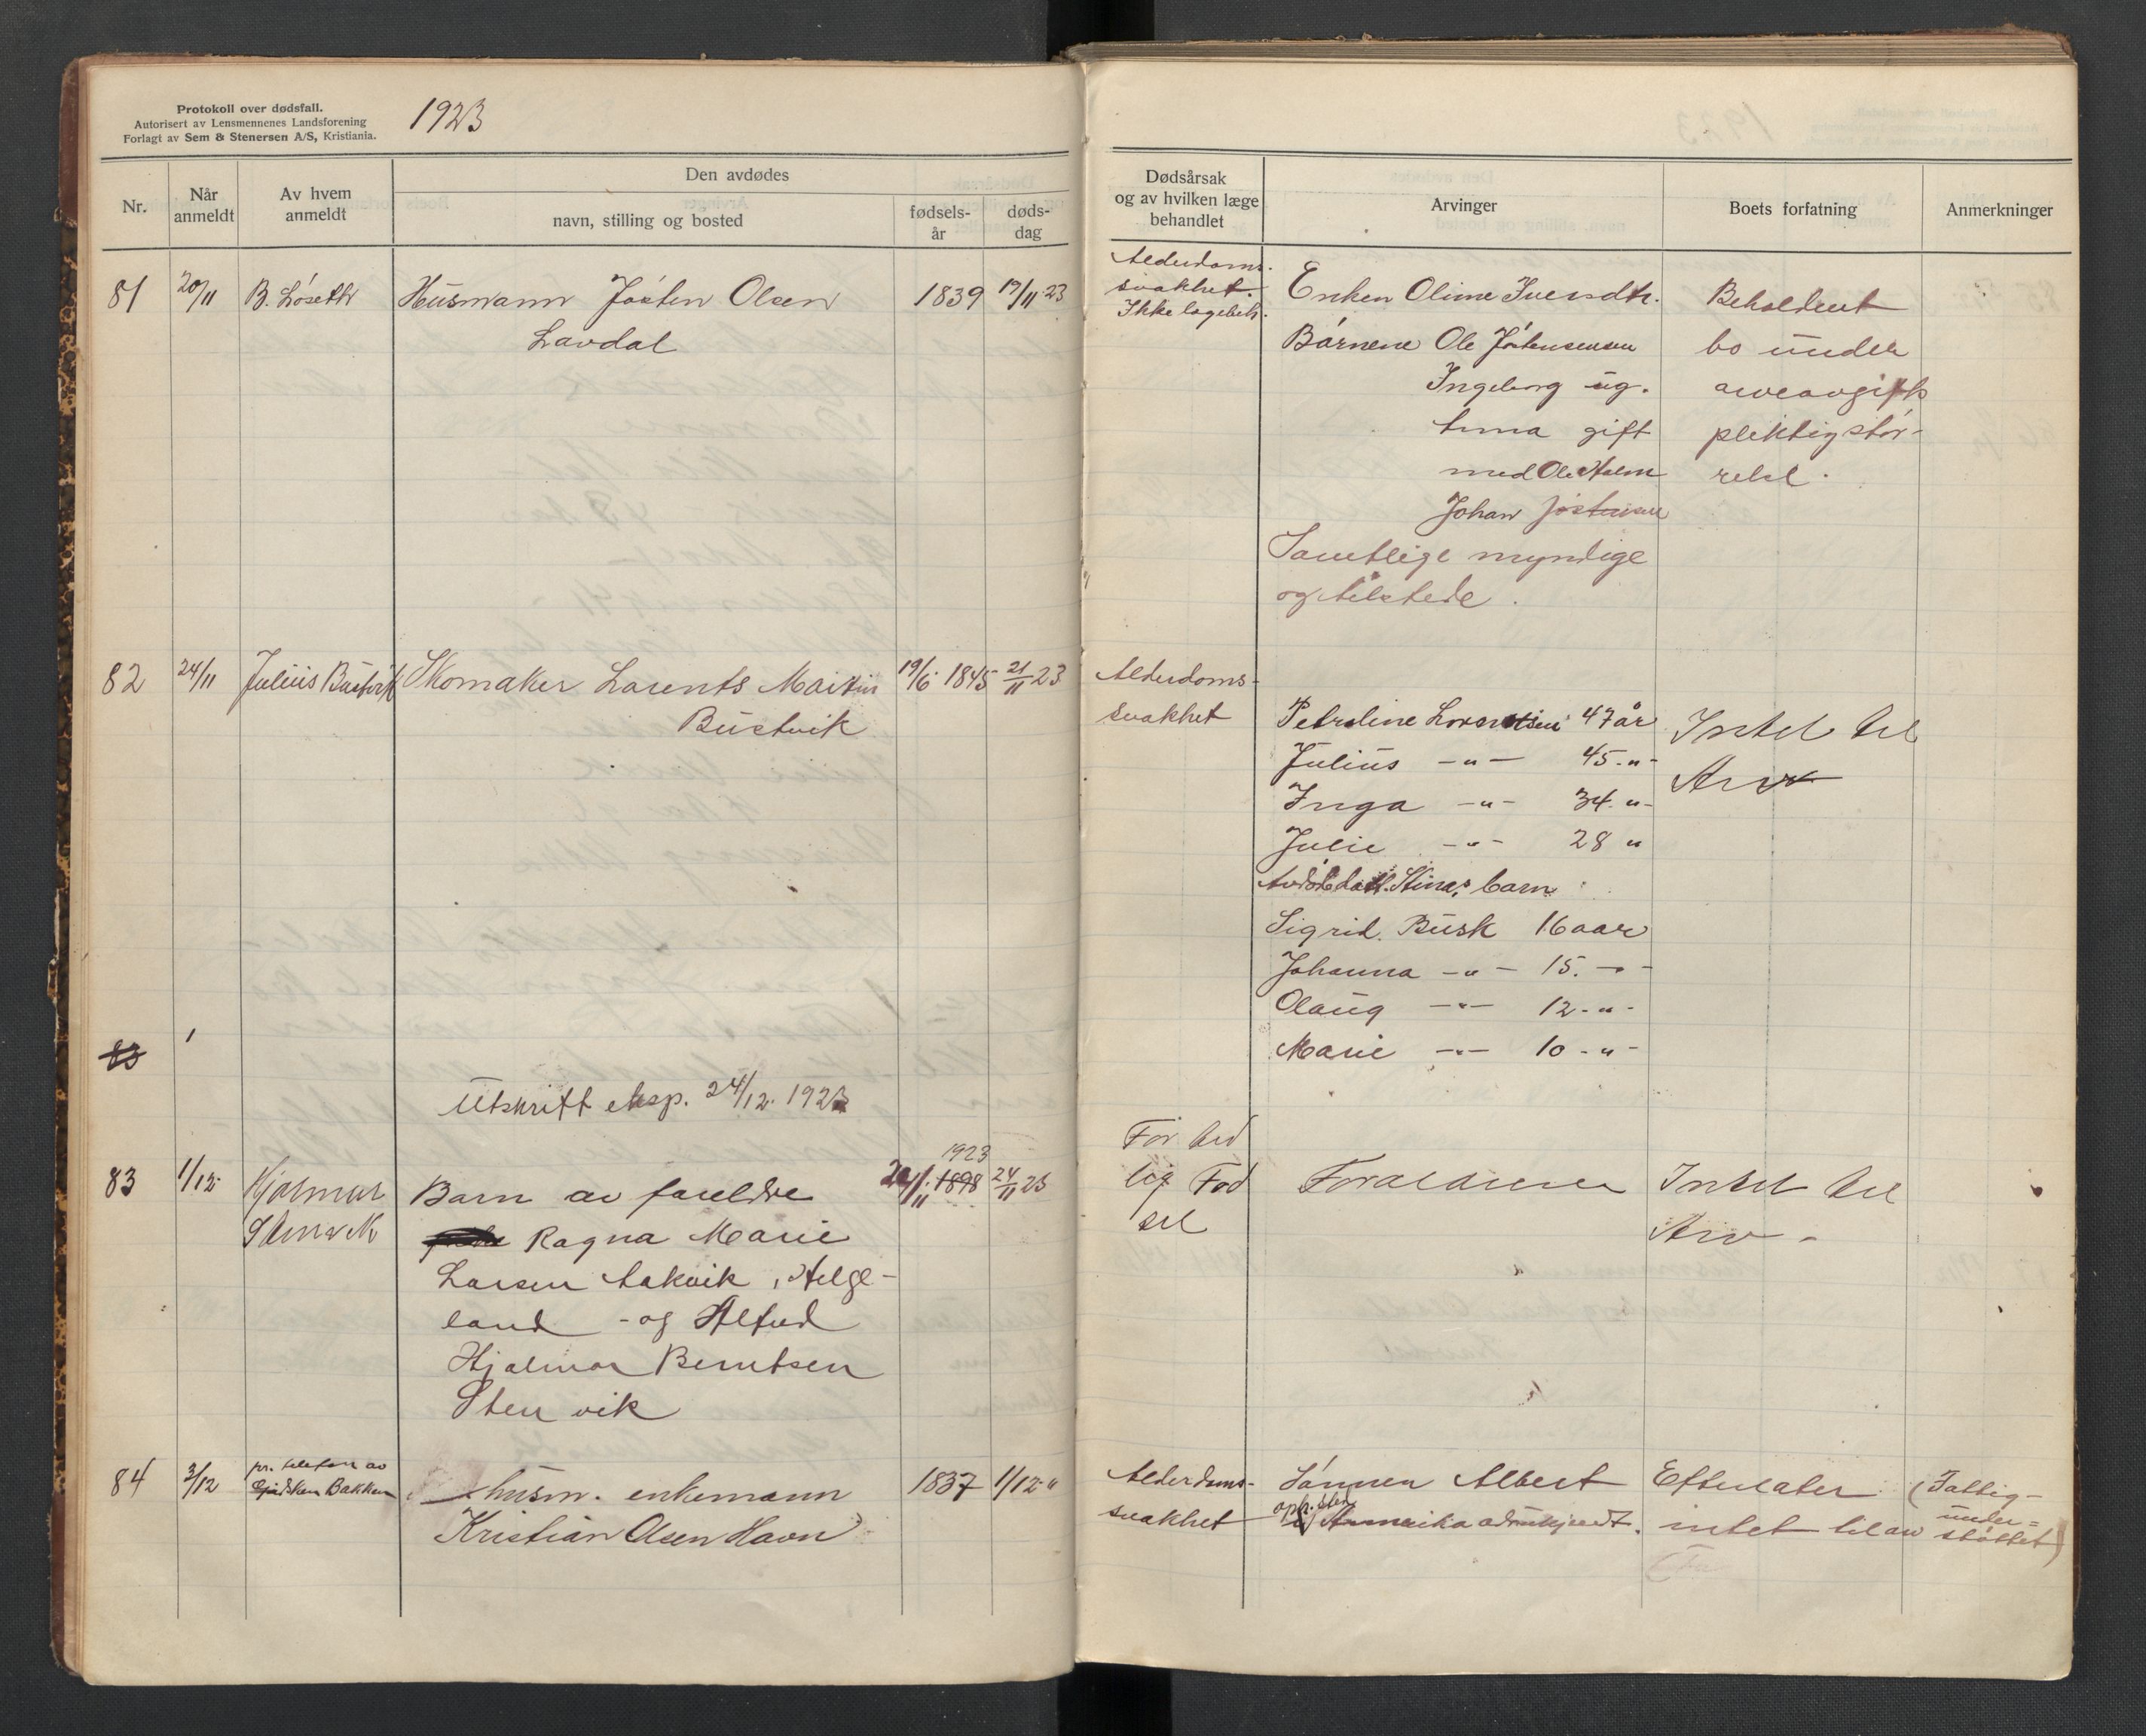 Protokoll over dødsfall.
Autorisert av Lensmennenes Landsforening
Forlagt av Sem & Stenersen A/S, Kristiania.
1923
Nr.
Når
anmeldt
Av hvem
anmeldt
Den avdødes
navn, stilling og bosted
fødsels-
år
døds-
dag
Dødsårsak
og av hvilken læge
behandlet
Arvinger
Boets forfatning
Anmerkninger
81 20/11 B. Løseth Husmann Jøsten Olsen 1839 19/11 23
Lavdal
Alderdoms-
svakhet.
Ikke lægebeh.
Enken Oline Iversdtr.
Børnene Ole Jøstensen
Ingeborg ug.
Anna gift
med Ole Holm
Johan Jøstensen
Samtlige myndige
og tilstede.
Beholdent
bo under
arveavgifts
pliktig stør-
relse.
82 24/11 Julius Bustvik Skomaker Larents Martin 19/6 1845 21/11 23
Bustvik
Alderdoms-
svakhet
Petroline Lorentsen 47 år
Julius -"- 45 -"-
Inga -"- 34 -"-
Julie -"- 28 "
Avdøde datt. Stinas barn:
Sigrid Busk 16 aar
Johanna -"- 15 -"-
Olaug -"- 12 -"-
Marie -"- 10 -"-
Intet til
Arv
83
Utskrift eksp. 24/12 1923
83 1/12 Hjalmar
Stenvik
Barn av foreldre
Ragna Marie
Larsen Aakvik, Helge-
land - og Alfred
Hjalmar Berntsen
Stenvik
1923
1898 24/11 23
For tid
lig Fød
sel
Forældrene
Intet til
Arv -
84 3/12 pr. telefon av
Bakken
husm. enkemann 1837 1/12 "
Kristian Olsen Havn
Alderdoms-
svakhet
Sønnen Albert
oph. sted
i Amerika adr. ukjendt.
Efterlater
intet til arv
(Fattig-
under-
støttet)